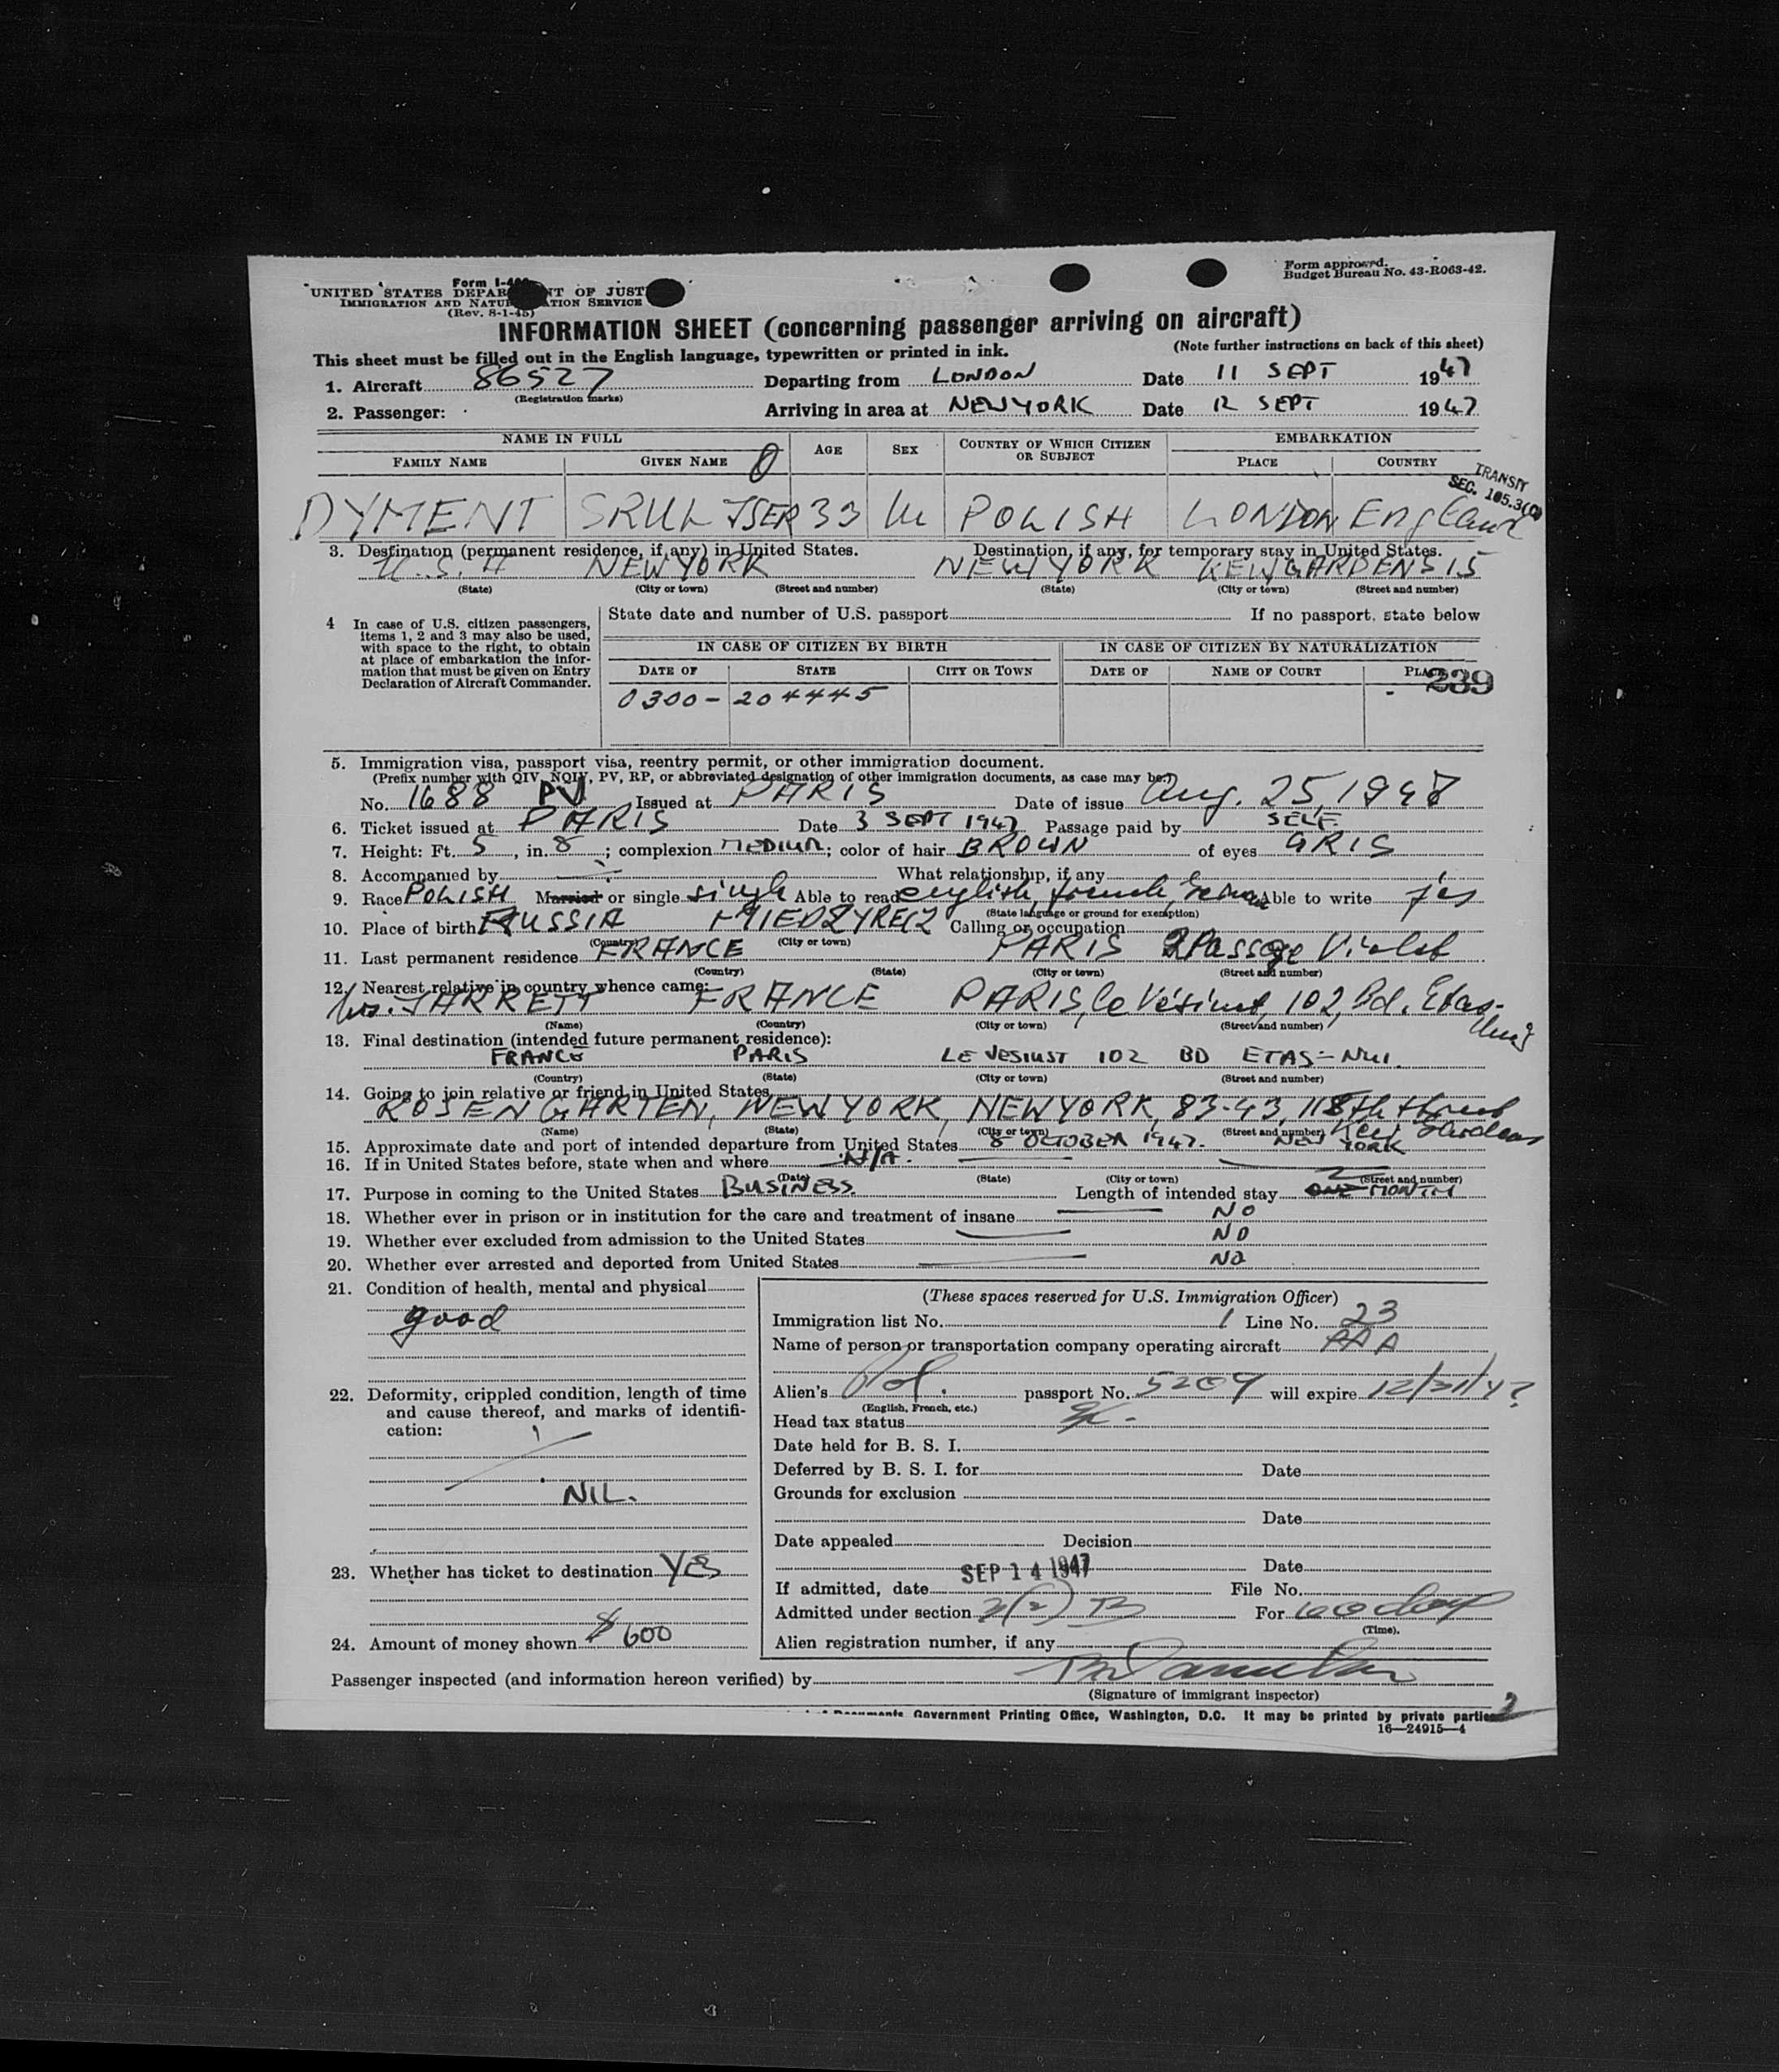 Form I-4
UNITED STATES DEPAR NT OF JUST
IMMIGRATION AND NATU ATION SERVICE
(Rev. 8-1-45)
Form approved.
Budget Bureau No. 43-R063-42.
INFORMATION SHEET (concerning passenger arriving on aircraft)
This sheet must be filled out in the English language, typewritten or printed in ink. (Note further instructions on back of this sheet)
1. Aircraft 86527 Departing from LONDON Date 11 SEPT 1947
(Registration marks)
2. Passenger: Arriving in area at NEW YORK Date 12 SEPT 1947
NAME IN FULL AGE SEX COUNTRY OF WHICH CITIZEN OR SUBJECT EMBARKATION
FAMILY NAME GIVEN NAME PLACE COUNTRY
TRANSIT
SEC. 105.3(c)
DYMENT SRUL JSER 33 M POLISH LONDON England
3. Destination (permanent residence, if any) in United States. Destination, if any, for temporary stay in United States.
U.S.A NEW YORK NEW YORK KEW GARDENS 15
(State) (City or town) (Street and number) (State) (City or town) (Street and number)
4 In case of U.S. citizen passengers, items 1, 2 and 3 may also be used, with space to the right, to obtain at place of embarkation the information that must be given on Entry Declaration of Aircraft Commander.
State date and number of U.S. passport If no passport, state below
IN CASE OF CITIZEN BY BIRTH IN CASE OF CITIZEN BY NATURALIZATION
DATE OF STATE CITY OR TOWN DATE OF NAME OF COURT PLACE
239
0300-204445
5. Immigration visa, passport visa, reentry permit, or other immigration document.
(Prefix number with QIV, NQIV, PV, RP, or abbreviated designation of other immigration documents, as case may be.)
No. 1688 PV Issued at PARIS Date of issue Aug. 25, 1947
6. Ticket issued at PARIS Date 3 SEPT 1947 Passage paid by SELF
7. Height: Ft. 5, in. 8; complexion MEDIUM; color of hair BROWN of eyes GRIS
8. Accompanied by What relationship, if any
9. Race POLISH Married or single single Able to read english, french, Able to write yes
(State language or ground for exemption)
10. Place of birth RUSSIA MIEDZYREC Calling or occupation
(Country) (City or town)
11. Last permanent residence FRANCE PARIS 2 Passage Violet
(Country) (State) (City or town) (Street and number)
12. Nearest relative in country whence came:
JARRETT FRANCE PARIS, le Vésinet, 102, Bd. Etas-Unis
(Name) (Country) (City or town) (Street and number)
13. Final destination (intended future permanent residence):
FRANCE PARIS LE VESIUST 102 BD ETAS-NUI.
(Country) (State) (City or town) (Street and number)
14. Going to join relative or friend in United States
ROSENGARTEN, NEW YORK, NEW YORK, 83-43, 118th Kew Gardens
(Name) (State) (City or town) (Street and number)
15. Approximate date and port of intended departure from United States 8 OCTOBER 1947. NEW YORK
16. If in United States before, state when and where N/A.
(Date) (State) (City or town) (Street and number)
17. Purpose in coming to the United States BUSINESS. Length of intended stay ONE 2 MONTH
18. Whether ever in prison or in institution for the care and treatment of insane NO
19. Whether ever excluded from admission to the United States NO
20. Whether ever arrested and deported from United States NO
21. Condition of health, mental and physical
good
22. Deformity, crippled condition, length of time and cause thereof, and marks of identification:
NIL.
23. Whether has ticket to destination YES
24. Amount of money shown $600
(These spaces reserved for U.S. Immigration Officer)
Immigration list No. 1 Line No. 23
Name of person or transportation company operating aircraft
Alien's Pol. passport No. 5209 will expire 12/31/47
(English, French, etc.)
Head tax status
Date held for B. S. I.
Deferred by B. S. I. for Date
Grounds for exclusion
Date
Date appealed Decision
Date
If admitted, date SEP 14 1947 File No.
Admitted under section 3(2) B For 60 days
(Time).
Alien registration number, if any
Passenger inspected (and information hereon verified) by
(Signature of immigrant inspector)
Documents, Government Printing Office, Washington, D.C. It may be printed by private parties
2
16—24915—4